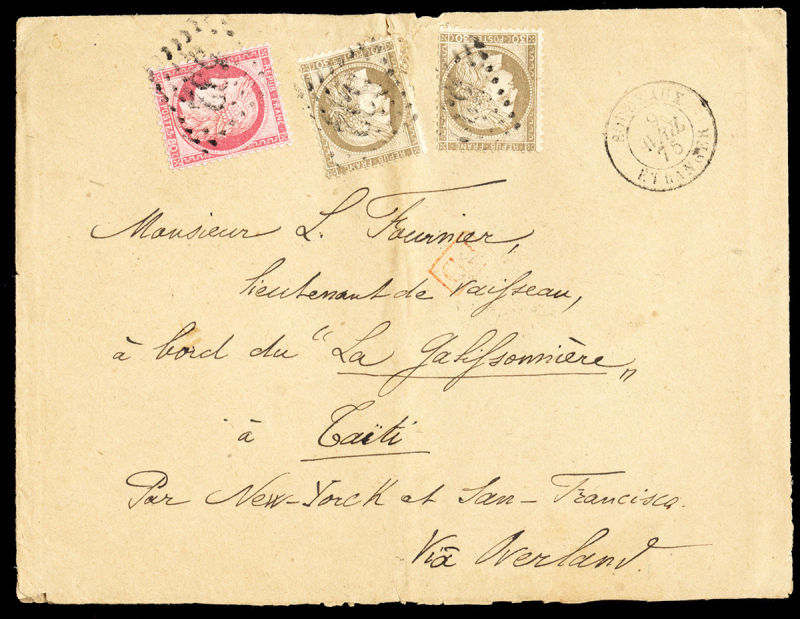 REPUB. FRANC.
POSTES. 80
30 C POSTES 30
REPUB. FRANC.
30 C POSTES 30
REPUB. FRANC.
BORDEAUX
9
AVRIL
75
ETRANGER
Monsieur L. Fournier,
lieutenant de vaisseau,
à bord du "La Galissonnière"
à Taïti
Par New-Yorck et San-Francisco.
Viâ Overland.